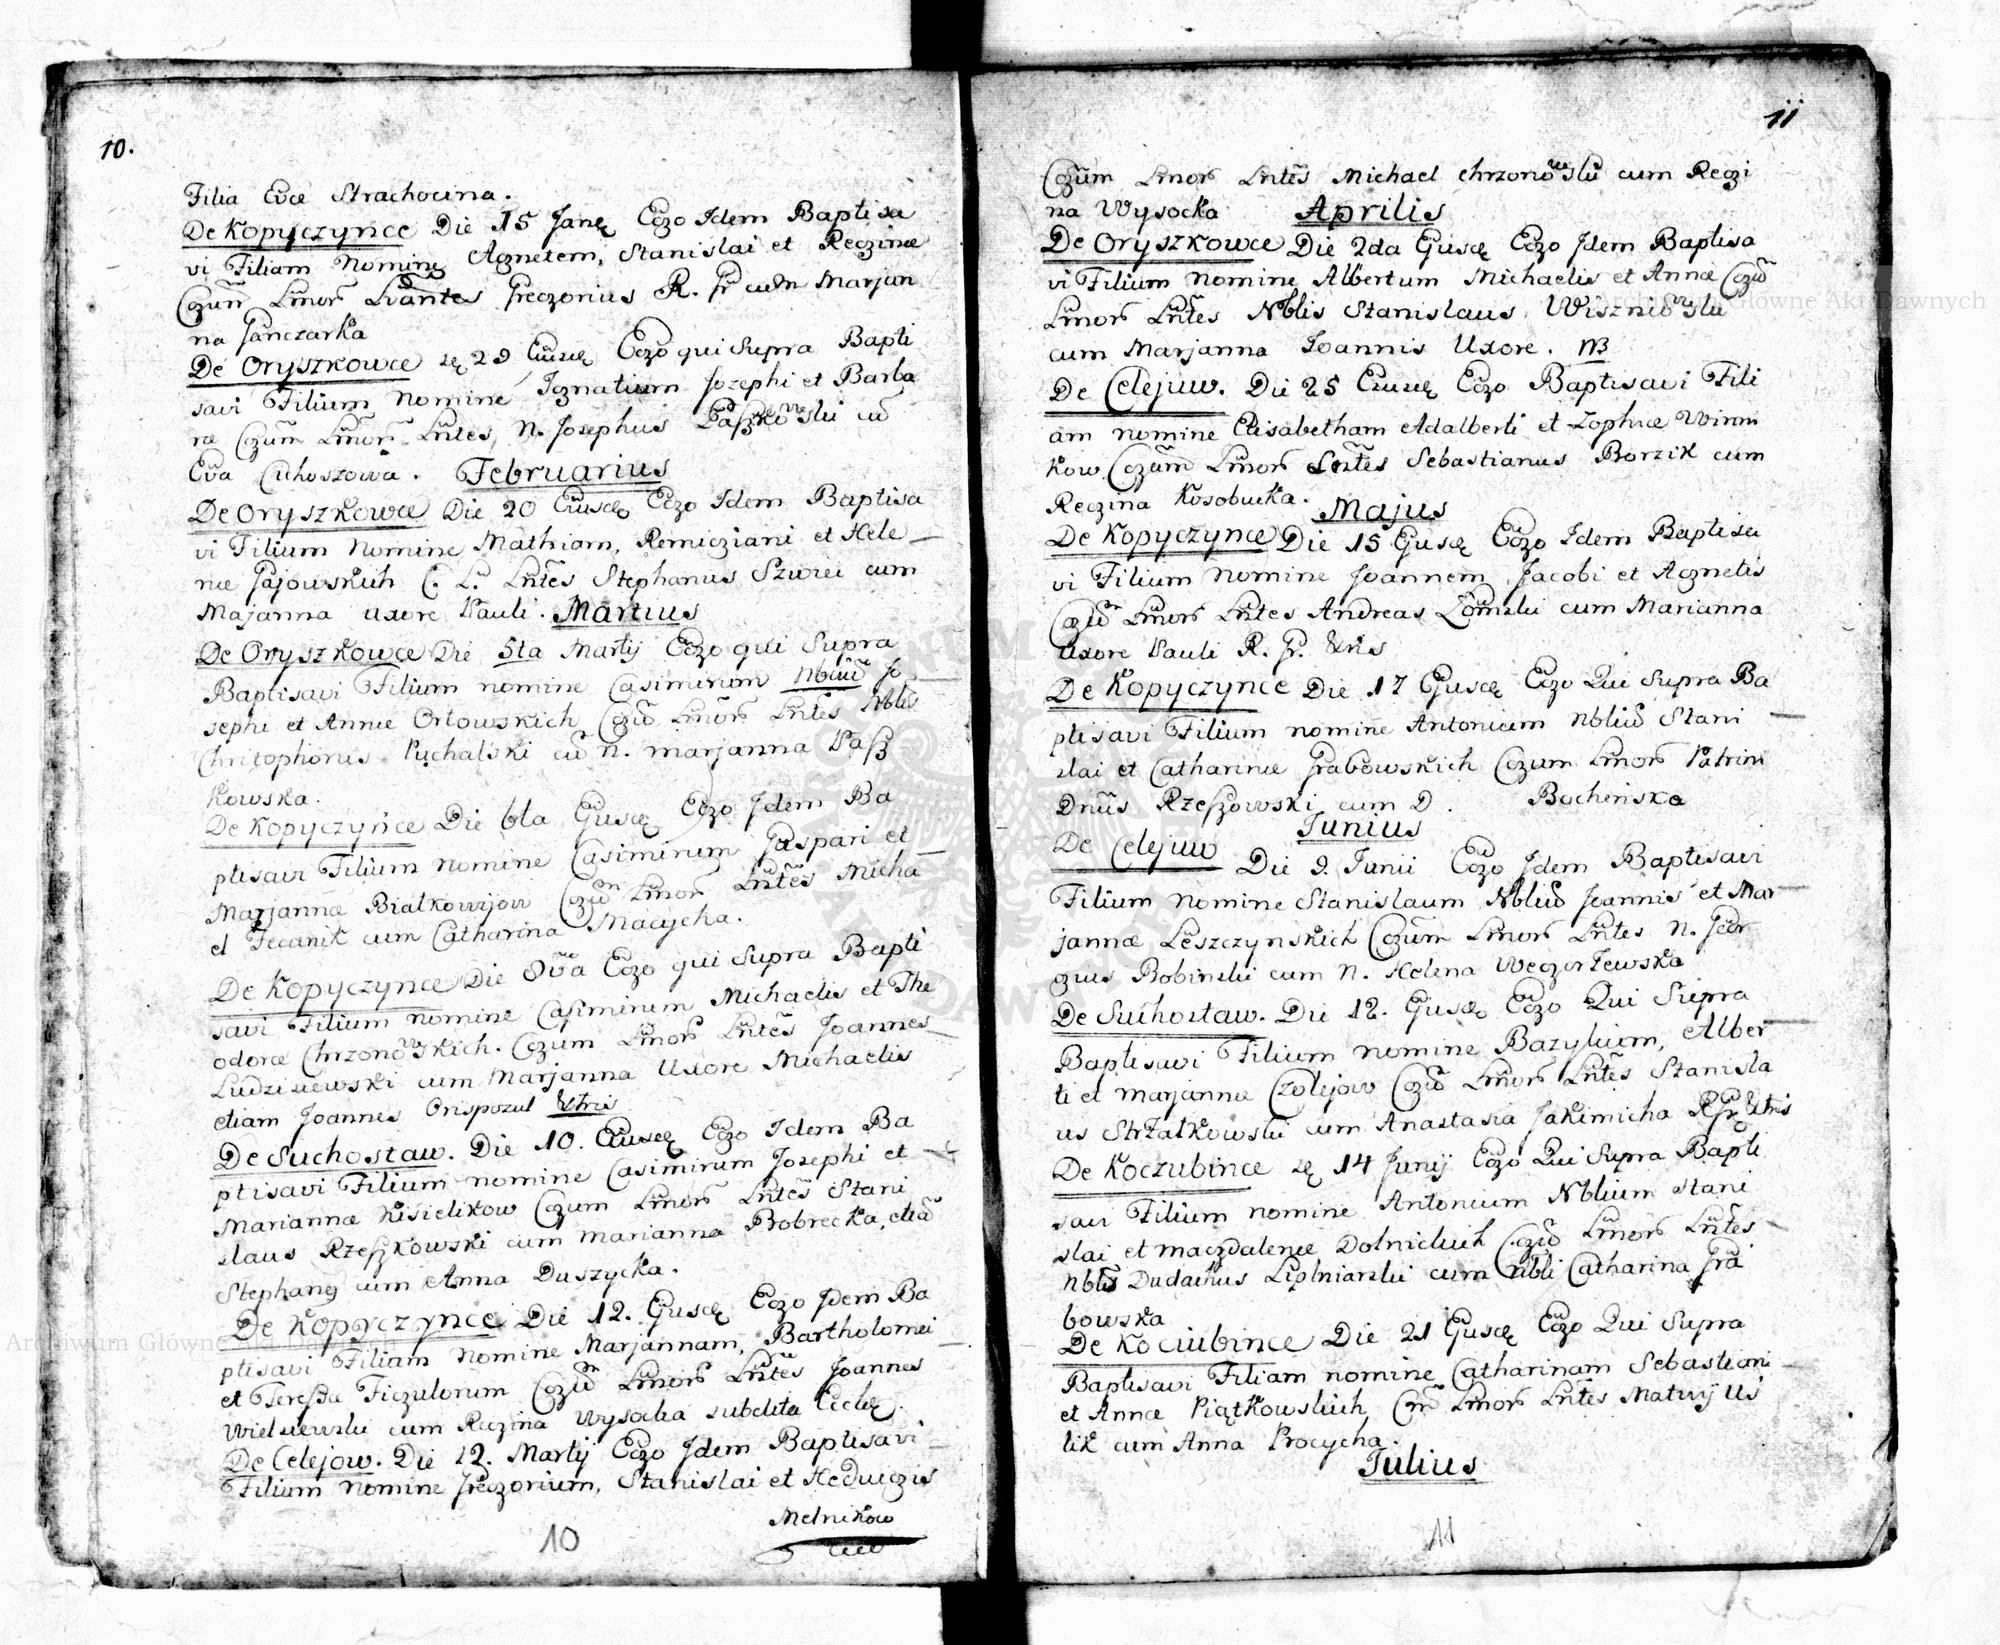 10.
Filia Evæ Strachocina.
De Kopyczynce Die 15 Janę Ego Idem Baptisa
vi Filiam Nomine Agnetem, Stanislai et Reginæ
Cgum Lmor Lvantes Gregorius R. Gr cum Marjan
na Ganczarka
De Oryszkowce 29 Ejusdę Ego qui Supra Bapti
savi Filium Nomine Ignatium Josephi et Barba
ræ Cgum Lmor Lntes, N. Josephus Paszkowski cū
Eva Cichoszowa. Februarius
De Oryszkowce Die 20 Ejusdę Ego Idem Baptisa
vi Filium Nomine Mathiam, Remigiani et Hele
næ Gajowskich C. L. Lntes Stephanus Szwiei cum
Majanna uxore Pauli. Martius
De Oryszkowce Die 5ta Martij Ego qui Supra
Baptisavi Filium nomine Casimirum Nbliū Jo
sephi et Annæ Orłowskich Cgū Lmor Lntes Nblis
Christophorus Puchalski cū N. marjanna Pasz
kowska.
De Kopyczynce Die 6ta Ejusdę Ego Idem Ba
ptisavi Filium nomine Casimirum Gaspari et
Marjannæ Białkowijow Cgū Lmor Lntes Micha
el Fecanik cum Catharina Macycha.
De Kopyczynce Die 8va Ego qui Supra Bapti
savi Filium nomine Casimirum Michaelis et The
odoræ Chrzonowskich. Cgum Lmor Lntes Joannes
Ludzisiewski cum Marjanna Uxore Michaelis
etiam Joannes Orispozul Utris
De Suchostaw. Die 10. Ejusdę Ego Idem Ba
ptisavi Filium nomine Casimirum Josephi et
Mariannæ Kisielikow Cgum Lmor Lntes Stani
slaus Rzeszkowski cum marianna Bobrecka, etiā
Stephang cum Anna Duszycka.
De Kopyczynce Die 12. Ejusdę Ego Idem Ba
ptisavi Filiam Nomine Marjannam, Bartholomei
et Teressæ Figulorum Cgū Lmor Lntes Joannes
Wielsiewski cum Regina Wysocka subdita Eccle.
De Celejow. Die 12. Martij Ego Idem Baptisavi
Filium nomine Gregorium, Stanislai et Heduigis
Melnikow
10
11
Cgum Lmor Lntes Michael Chrzonowski cum Regi
na Wysocka Aprilis
De Oryszkowce Die 2da Ejusdę Ego Idem Baptisa
vi Filium Nomine Albertum Michaelis et Annæ Cgū
Lmor Lntes Nblis Stanislaus Wiszniowski
cum Marjanna Joannis Uxore. NB
De Celejuw. Die 25 Ejusdę Ego Baptisavi Fili
am nomine Elisabetham Adalberti et Zophiæ Winni
kow Cgum Lmor Lntes Sebastianus Borzik cum
Regina Kosobucka. Majus
De Kopyczynce Die 15 Ejusdę Ego Idem Baptisa
vi Filium Nomine Joannem Jacobi et Agnetis
Cgū Lmor Lntes Andreas Łomski cum Marianna
Uxore Pauli R. Gr. Utris
De Kopyczynce Die 17 Ejusdę Ego Qui Supra Ba
ptisavi Filium nomine Antonium Nbliū Stani
slai et Catharinæ Grabowskich Cgum Lmor Patrini
Dnus Rzeszowski cum D. Bochenska
Junius
De Celejuw Die 9. Junii Ego Idem Baptisavi
Filium nomine Stanislaum Nbliū Joannis et Mar
jannæ Leszczynskich Cgum Lmor Lntes N. Geor
gius Bobinski cum N. Helena Węgorzewska
De Suchostaw. Die 12. Ejusdę Ego Qui Supra
Baptisavi Filium nomine Bazylium, Alber
ti et Marjannæ Czolejow Cgū Lmor Lntes Stanisla
us Strzałkowski cum Anastasia Jakimicha R Gr Utris
De Koczubince 14 Junij Ego Qui Supra Bapti
savi Filium nomine Antonium Nblium Stani
slai et magdalenæ Dolnickich Cgū Lmor Lntes
Nblis Dudacius Lipiniarski cum Nbli Catharina Gra
bowska
De Kociubince Die 21 Ejusdę Ego Qui Supra
Baptisavi Filiam nomine Catharinam Sebastiani
et Annæ Piątkowskich, Cm Lmor Lntes Matwij Us
tik cum Anna Procycha.
Julius
11
Archiwum Główne Akt Dawnych
Archiwum Główne Akt Dawnych
ARCHIWUM GŁÓWNE AKT DAWNYCH